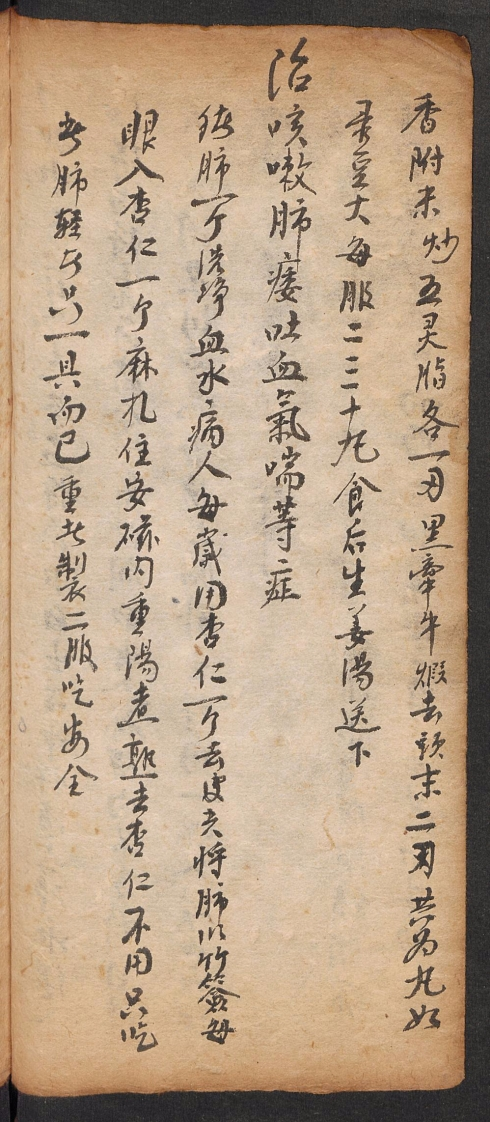 香附米炒五灵脂各一刄黑牽牛煅去頭末二刄共为丸如
菉豆大每服二三十丸食后生姜湯送下
治咳嗽肺痿吐血氣喘等症
猪肺一个洗净血水病人每歲用杏仁一个去皮尖将肺以竹簽每
眼入杏仁一个麻扎住安磁内重湯煮熟去杏仁不用只吃
此肺轻者只一具而已重者製二服吃安全